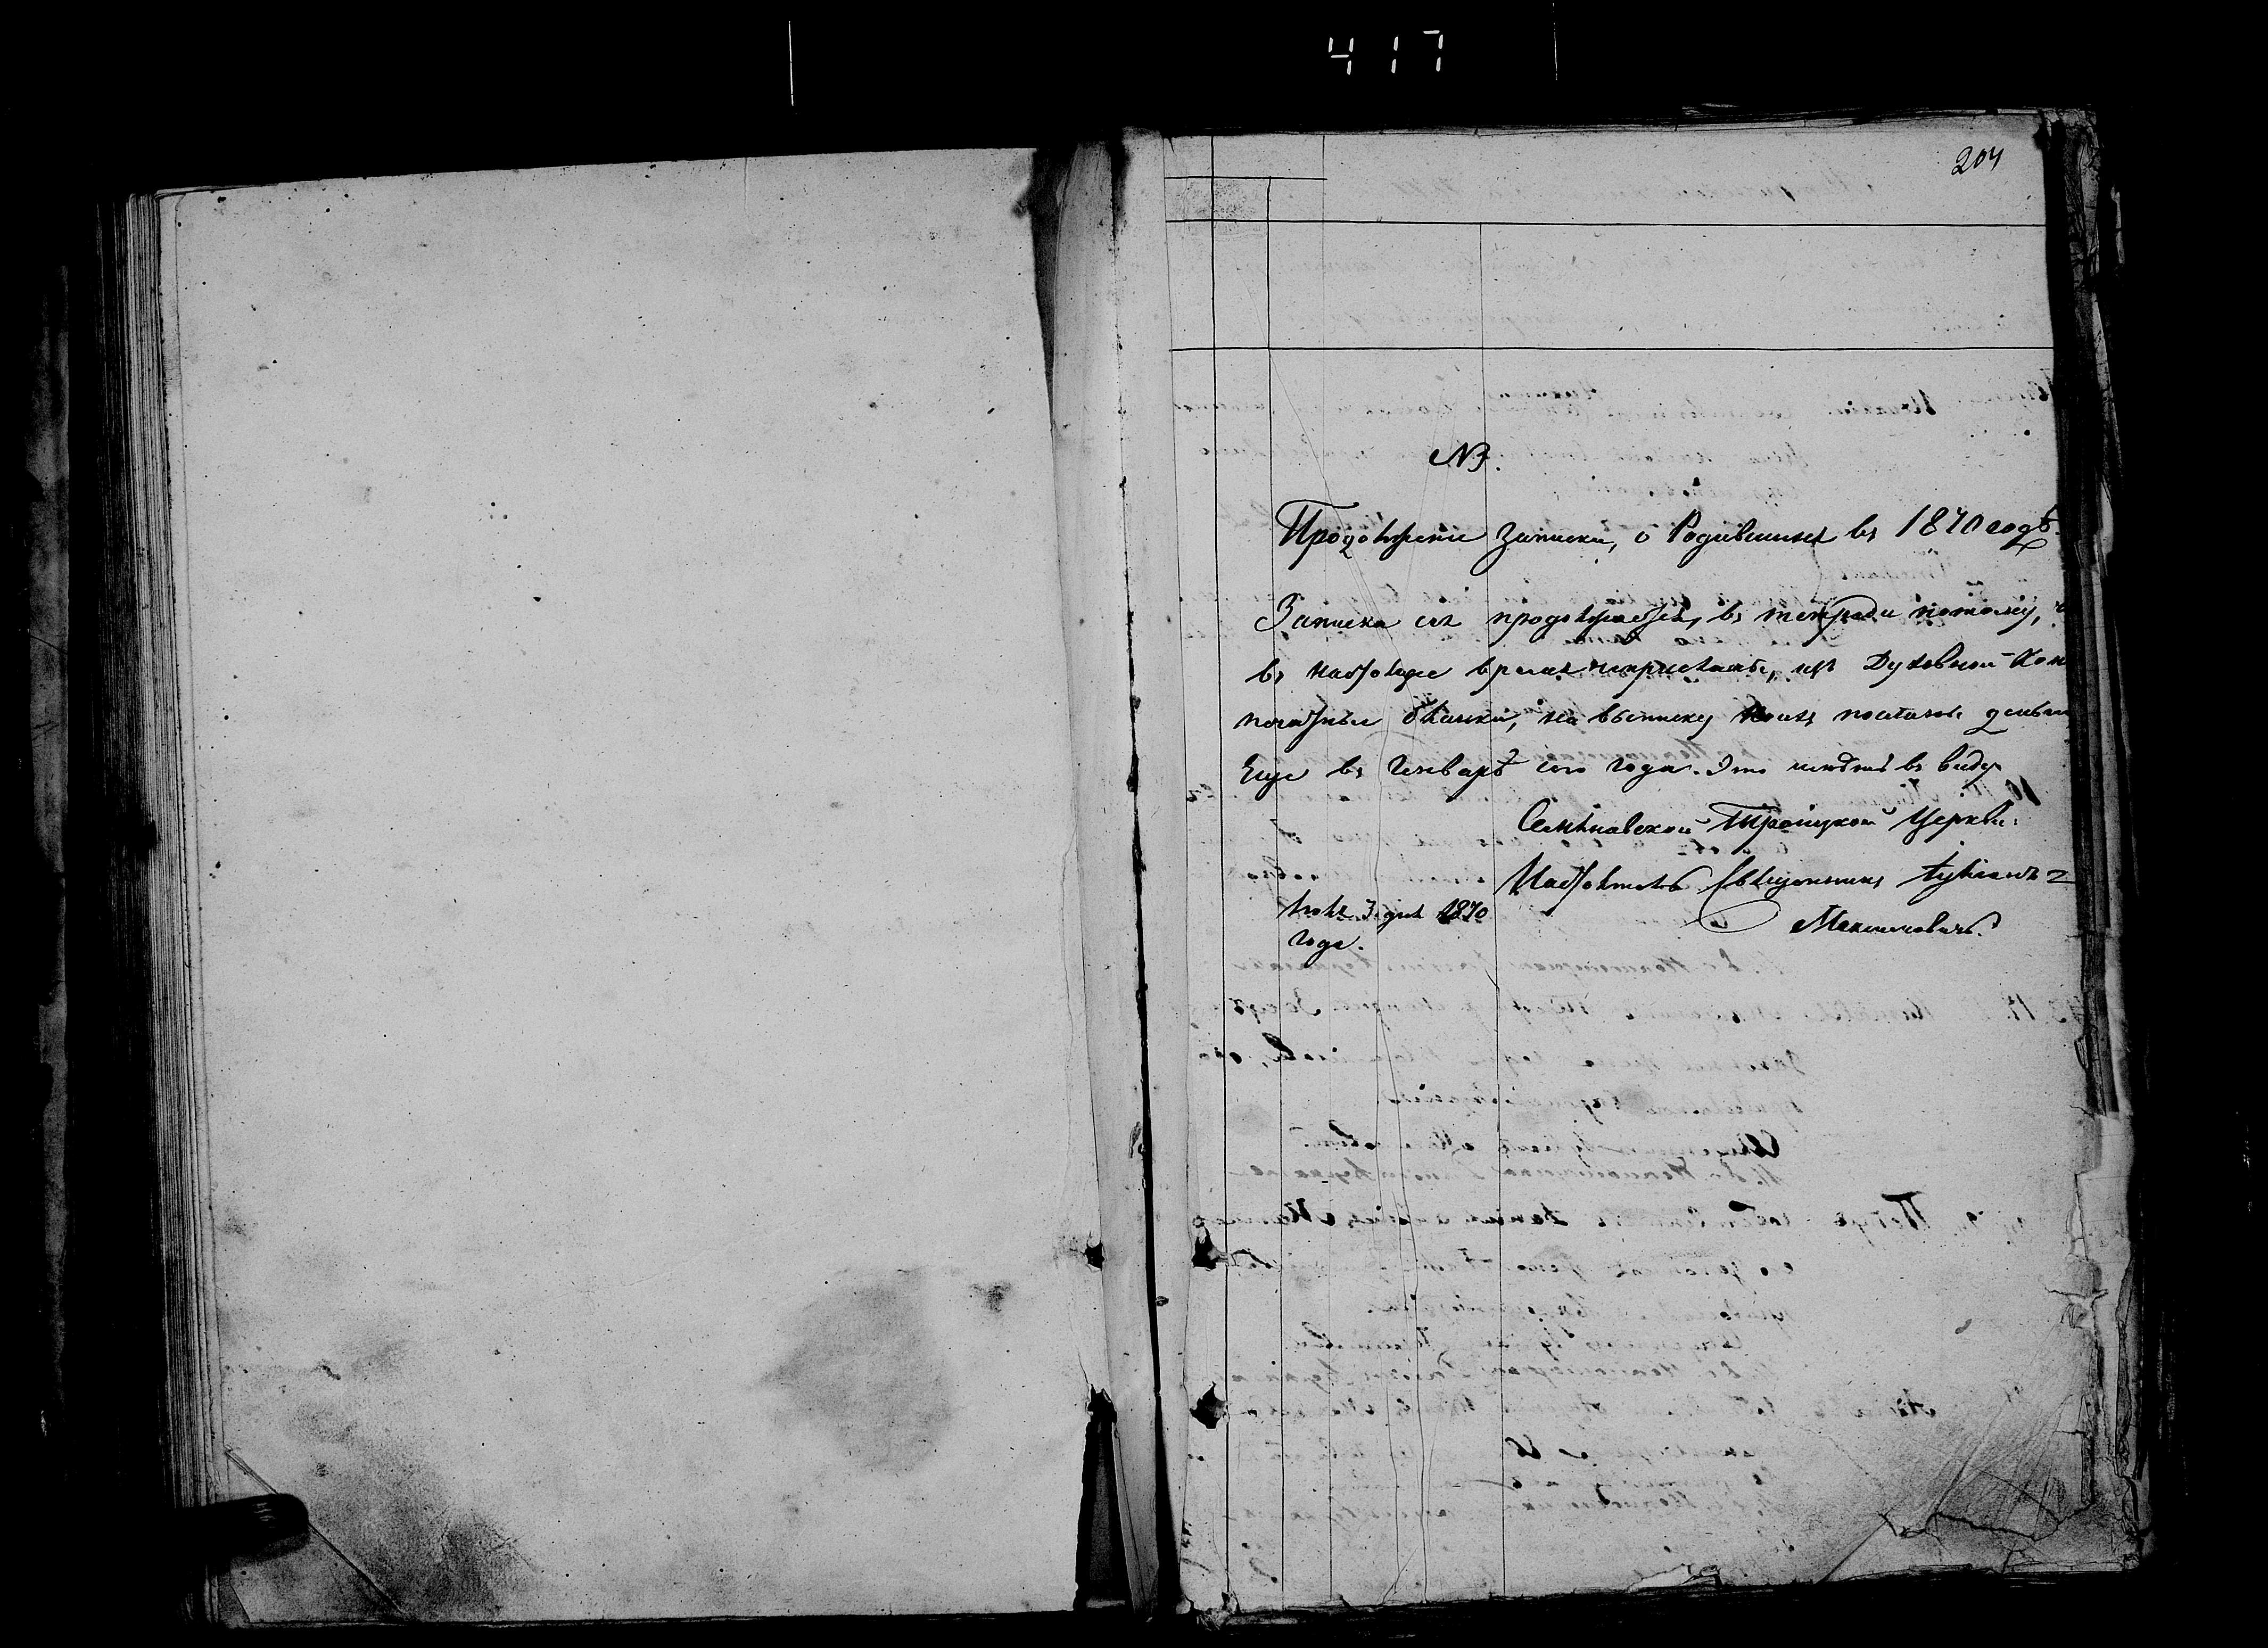 417
204
NB.
Продолженіе записки, о Родившихся въ 1870 годѣ.
Записка сія продолжается, въ тетради потому,
въ настоящее время не присланы, изъ Духовной Кон
печатные бланки, на выписку коихъ посланы деньги
Еще въ Генварѣ сего года. Это имѣть въ виду
Семѣновской Троицкой Церкви
Настоятель Священникъ Лукіанъ
Максимовичъ.
Іюля 3 дня 1870
года.